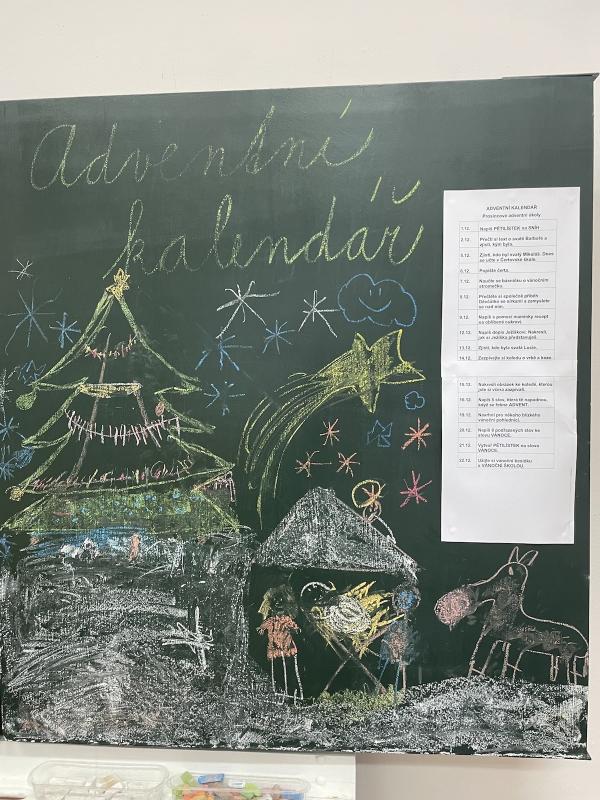 Adventní
kalendář
ADVENTNÍ KALENDÁŘ
Prosincové adventní úkoly
1.12. Napiš PĚTILÍSTEK na SNÍH
2.12. Přečti si text o svaté Barboře a
zjisti, kým byla.
5.12. Zjisti, kdo byl svatý Mikuláš. Dnes
se učíte v Čertovské škole.
6.12. Popište čerta.
7.12. Naučte se básničku o vánočním
stromečku.
8.12. Přečtěte si společně příběh
Děvčátko se sirkami a zamyslete
se nad ním.
9.12. Napiš s pomocí maminky recept
na oblíbené cukroví.
12.12. Napiš dopis Ježíškovi. Nakresli,
jak si Ježíška představuješ.
13.12. Zjisti, kdo byla svatá Lucie.
14.12. Zazpívejte si koledu o vrbě a koze.
15.12. Nakresli obrázek ke koledě, kterou
jste si včera zazpívali.
16.12. Napiš 5 slov, která tě napadnou,
když se řekne ADVENT.
19.12. Navrhni pro někoho blízkého
vánoční pohlednici.
20.12. Napiš 8 podřazených slov ke
slovu VÁNOCE.
21.12. Vytvoř PĚTILÍSTEK na slovo
VÁNOCE.
22.12. Užijte si vánoční besídku
s VÁNOČNÍ ŠKOLOU.